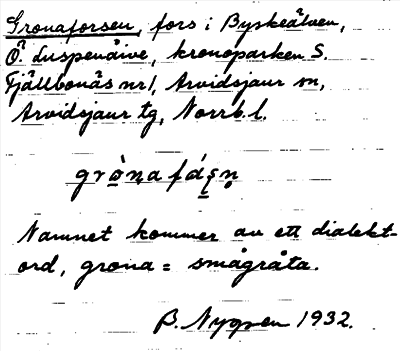 Gronaforsen, fors i Byskeälven,
Ö. Luspenäive, kronoparken S.
Fjällbonäs nr 1, Arvidsjaur sn,
Arvidsjaur tg, Norrb. l.
Namnet kommer av ett dialekt-
ord, grona = smågråta.
B. Nygren 1932.